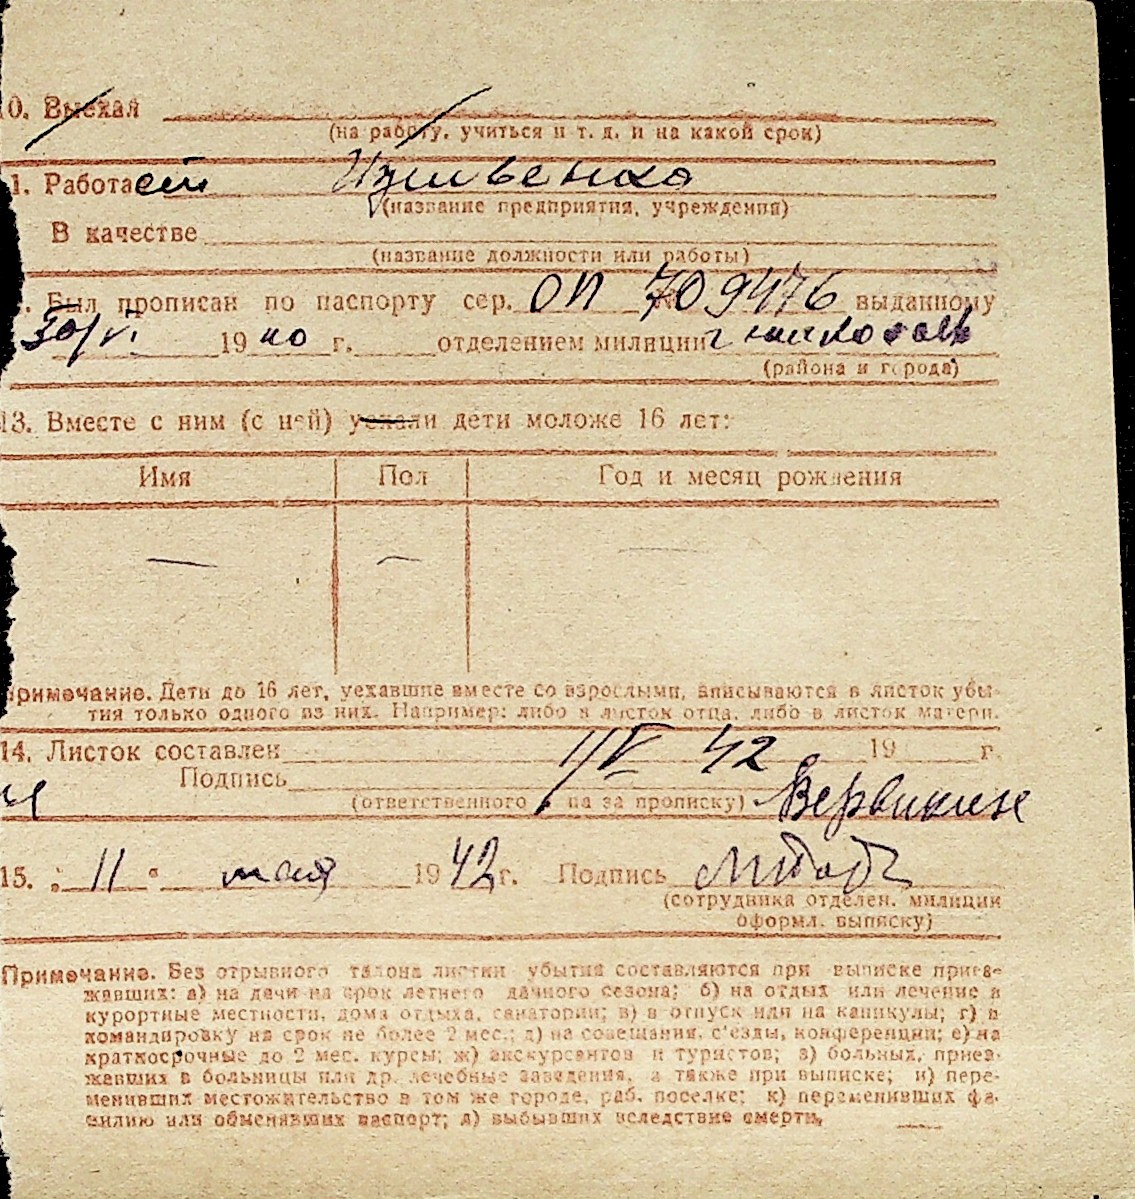 10. Выехал
(на работу, учиться и т. д. и на какой срок)
11. Работает Иждивенка
(название предприятия, учреждения)
В качестве
(название должности или работы)
Был прописан по паспорту сер. ОП № 709476 выданному
30/VI 1940 г. отделением милиции г
(района и города)
13. Вместе с ним (с ней) уехали дети моложе 16 лет:
Имя Пол Год и месяц рождения
— — —
Примечание. Дети до 16 лет, уехавшие вместе со взрослыми, вписываются в листок убы-
тия только одного из них. Например: либо в листок отца, либо в листок матери.
14. Листок составлен 11/V 42 19 г.
Подпись
(ответственного за прописку)
15. „ 11 “ мая 1942 г. Подпись
(сотрудника отделен. милиции
оформл. выписку)
Примечание. Без отрывного талона листки убытия составляются при выписке приез-
жавших: а) на дачи на срок летнего дачного сезона; б) на отдых или лечение в
курортные местности, дома отдыха, санатории; в) в отпуск или на каникулы; г) в
командировку на срок не более 2 мес.; д) на совещания, с'езды, конференции; е) на
краткосрочные до 2 мес. курсы; ж) экскурсантов и туристов; з) больных, приез-
жавших в больницы или др. лечебные заведения, а также при выписке; и) пере-
менивших местожительство в том же городе, раб. поселке; к) переменивших фа-
милию или обменявших паспорт; л) выбывших вследствие смерти.